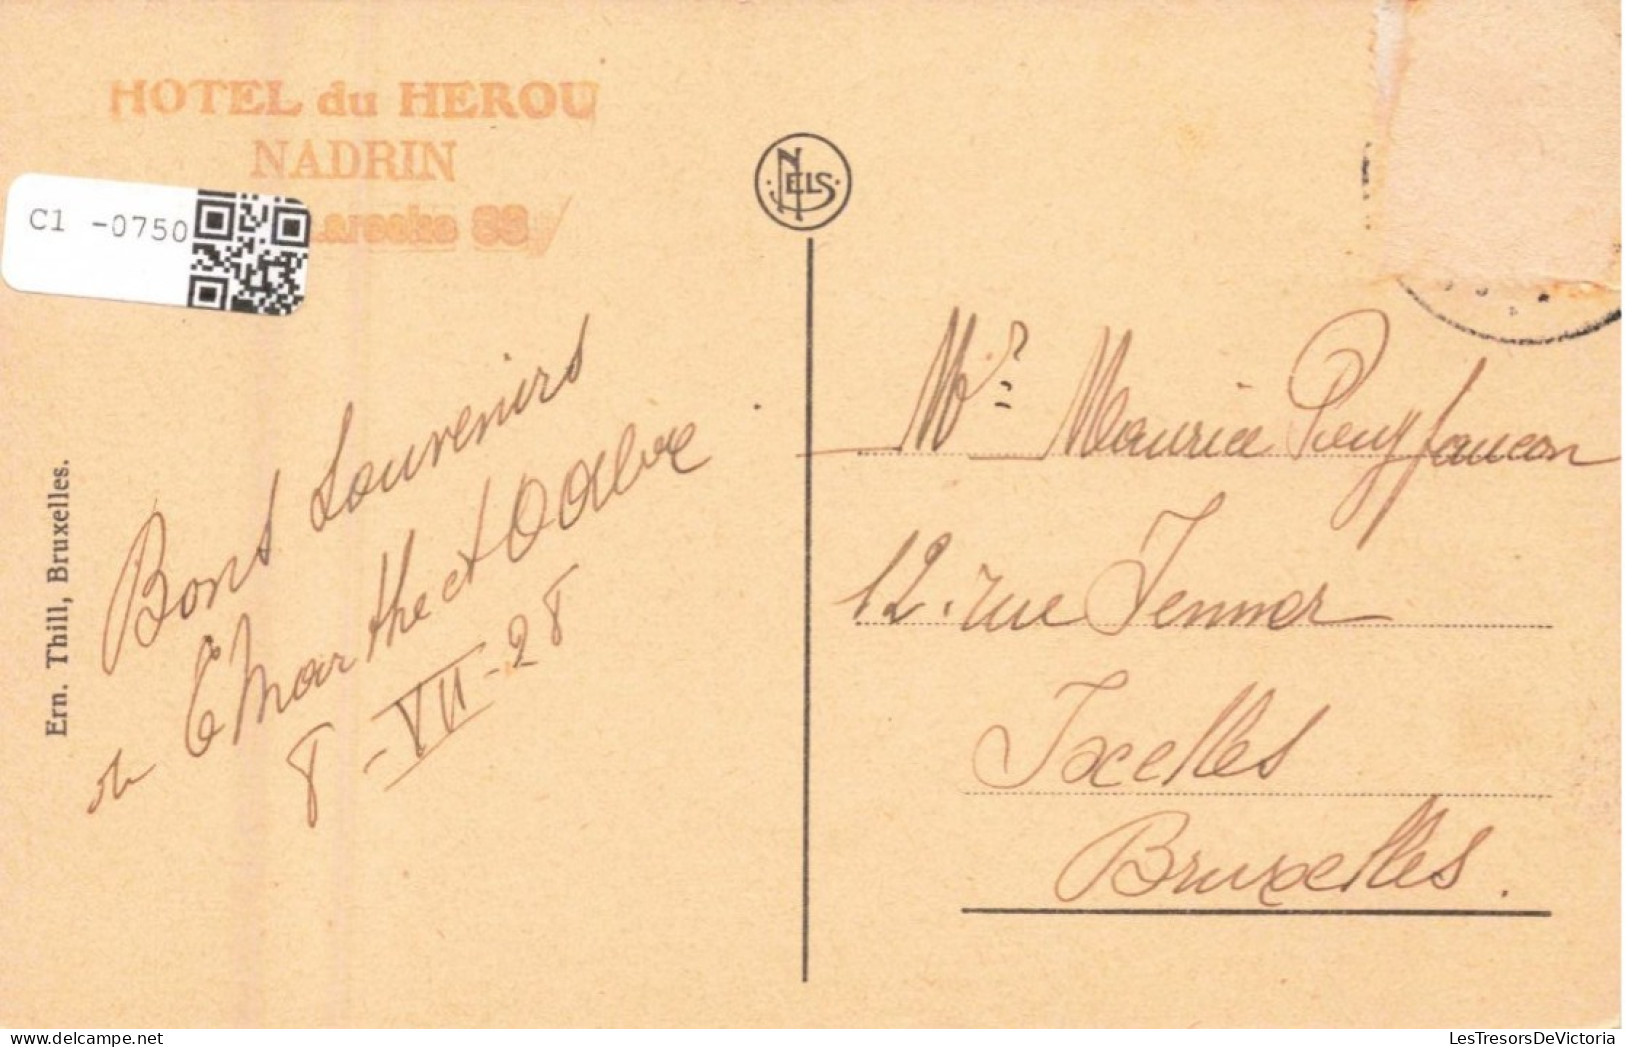 HOTEL du HEROU
NADRIN
Laroche 83
C1 -0750
NELS
Ern. Thill, Bruxelles.
Bons Souvenirs
de Marthe et
8-VII-28
Mr Maurice Puyfaucon
12. rue Jenner
Ixelles
Bruxelles.
LesTresorsDeVictoria